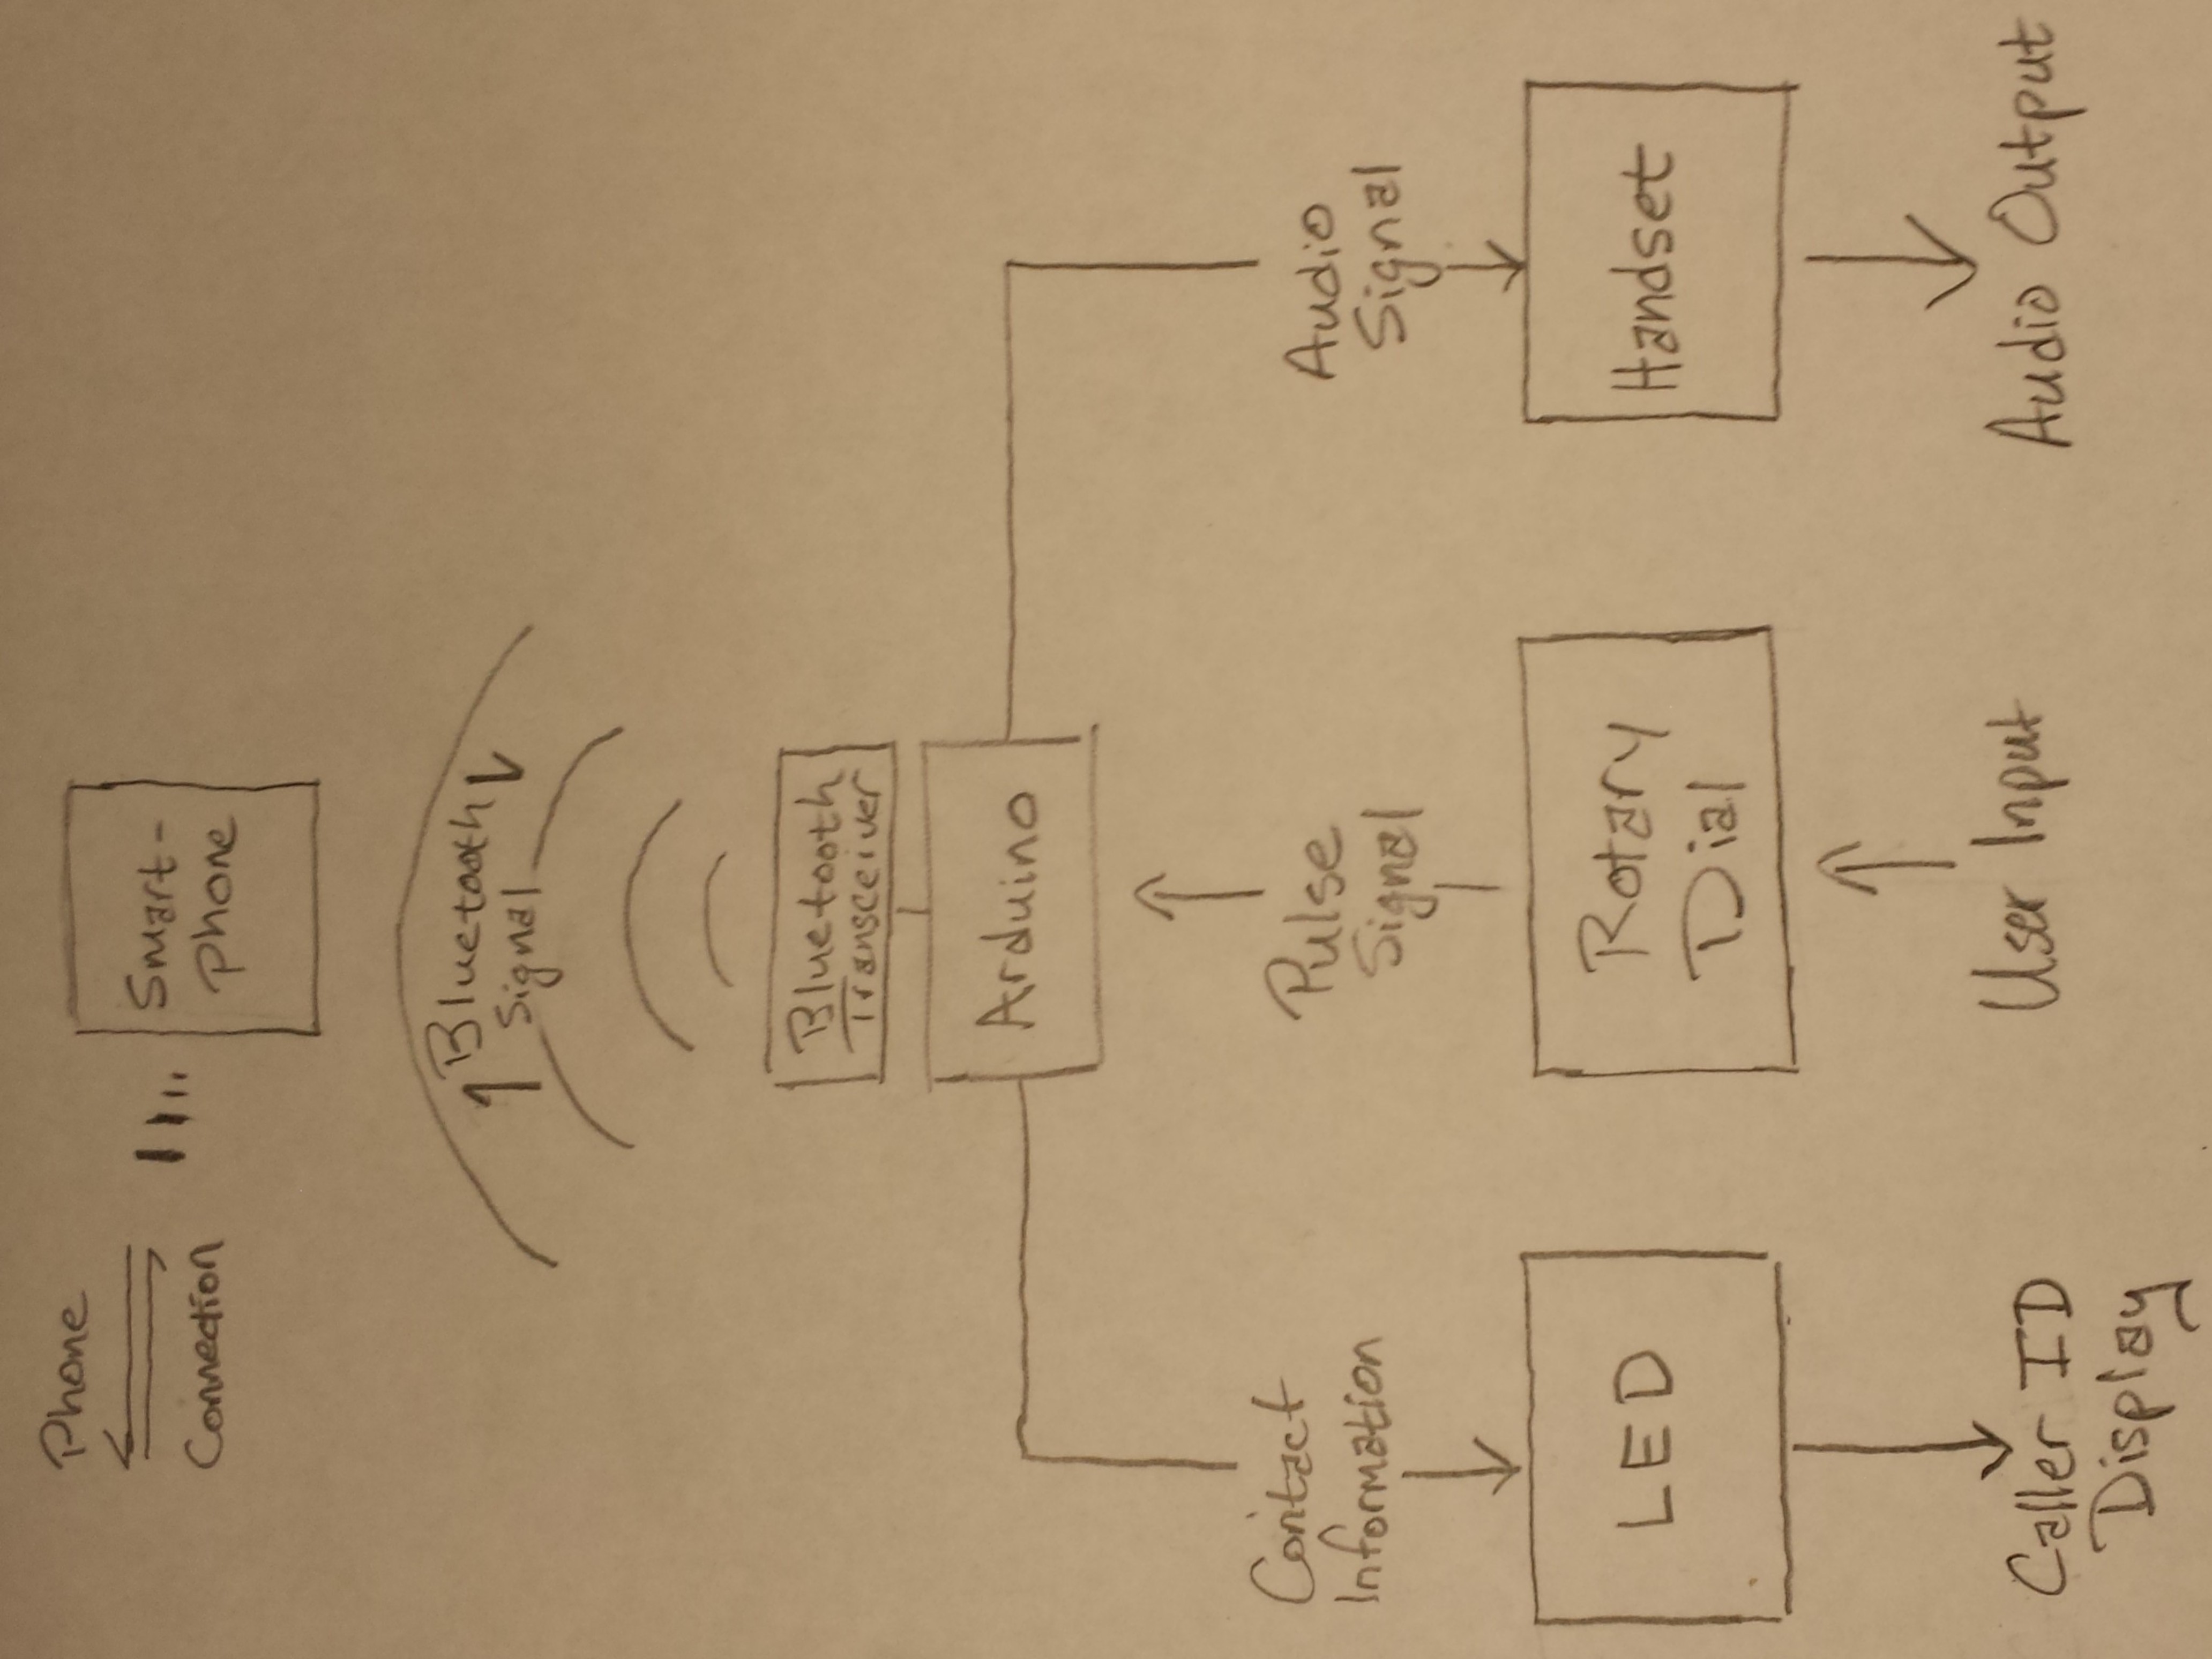 Phone
Connection
Smart-
Phone
Bluetooth
Signal
Bluetooth
Transceiver
Arduino
Contact
Information
Pulse
Signal
Audio
Signal
LED
Rotary
Dial
Handset
Caller ID
Display
User Input
Audio Output